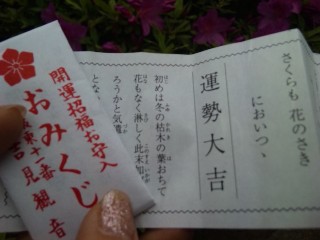 開運招福お守入
おみくじ
第十番
吉見観音
さくらも 花のさき
においつゝ
運勢大吉
初めは冬の枯木の葉おちて
花もなく淋しく此末
ろうかと気遣
とな